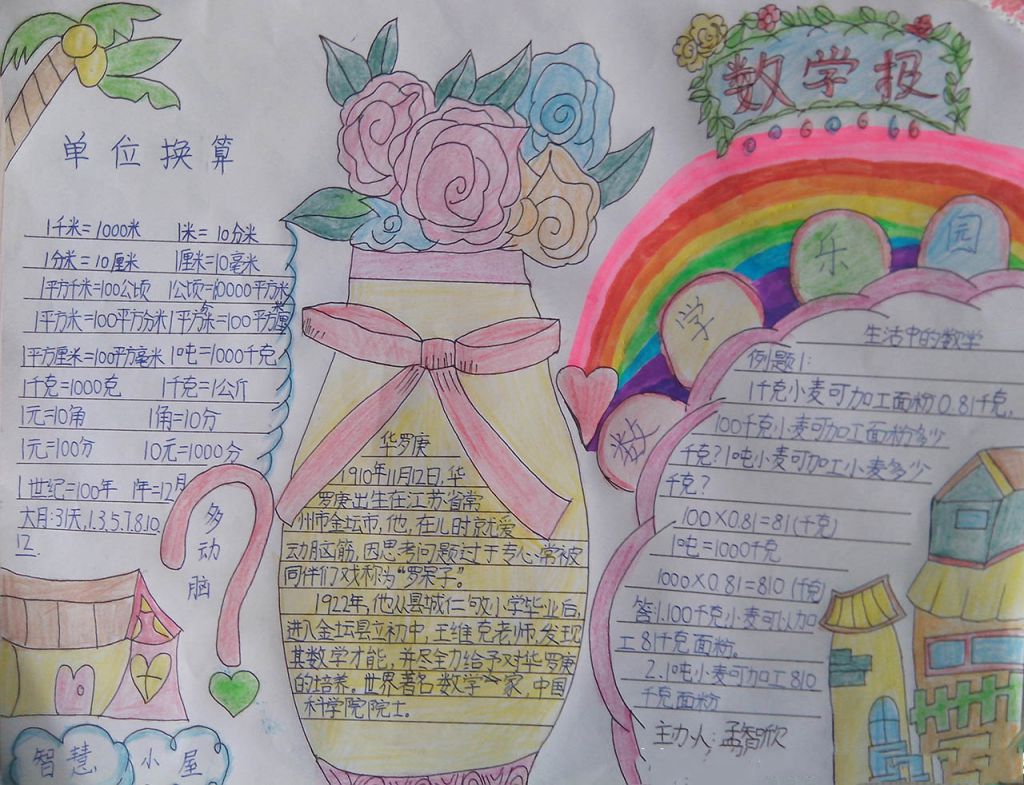 数学报
单位换算
1千米=1000米 1米=10分米
1分米=10厘米 1厘米=10毫米
1平方千米=100公顷 1公顷=10000平方米
1平方米=100平方分米 1平方分米=100平方厘米
1平方厘米=100平方毫米 1吨=1000千克
1千克=1000克 1千克=1公斤
1元=10角 1角=10分
1元=100分 10元=1000分
1世纪=100年 1年=12月
大月:31天,1.3.5.7.8.10.
12.
多动脑
智慧小屋
华罗庚
1910年11月12日,华
罗庚出生在江苏省常
州市金坛市,他,在儿时就爱
动脑筋,因思考问题过于专心常被
同伴们戏称为“罗呆子”。
1922年,他从县城仁劬小学毕业后,
进入金坛县立初中,王维克老师,发现
其数学才能,并尽全力给予对华罗庚
的培养。世界著名数学家,中国
科学院院士。
数学乐园
生活中的数学
例题1:
1千克小麦可加工面粉0.81千克,
100千克小麦可加工面粉多少
千克?1吨小麦可加工小麦多少
千克?
100×0.81=81(千克)
1吨=1000千克
1000×0.81=810(千克)
答:1.100千克小麦可以加
工81千克面粉。
2.1吨小麦可加工810
千克面粉
主办人:孟智欣